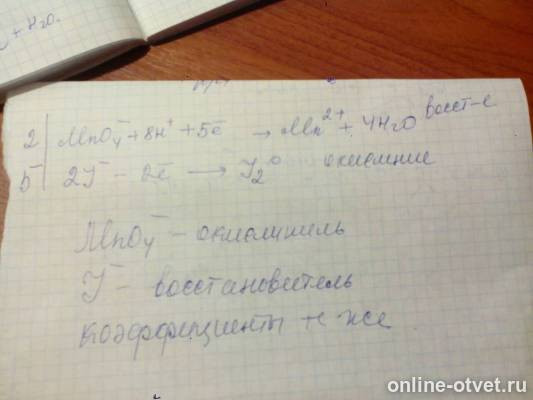 + H₂O.
2 | MnO₄⁻ + 8H⁺ + 5ē → Mn²⁺ + 4H₂O восст-е
5 | 2J⁻ - 2ē → J₂⁰ окисление
MnO₄⁻ - окислитель
J⁻ - восстановитель
коэффициенты те же
online-otvet.ru